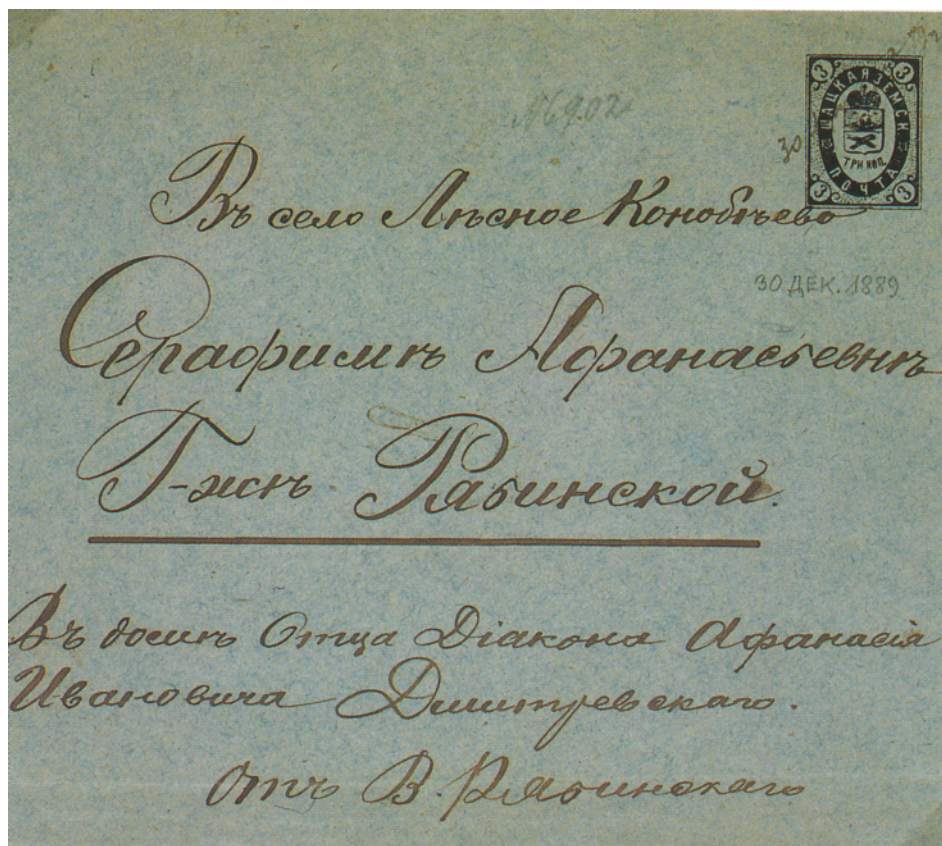 3 3
ШАЦКАЯ ЗЕМСК.
ТРИ КОП.
ПОЧТА
3 3
30
Въ село Лѣсное Конобѣево
30 ДЕК. 1889
Серафимѣ Афанасьевнѣ
Г-жѣ Рябинской.
Въ домѣ Отца Діакона Афанасія
Ивановича Димитревскаго.
Отъ В. Рябинскаго